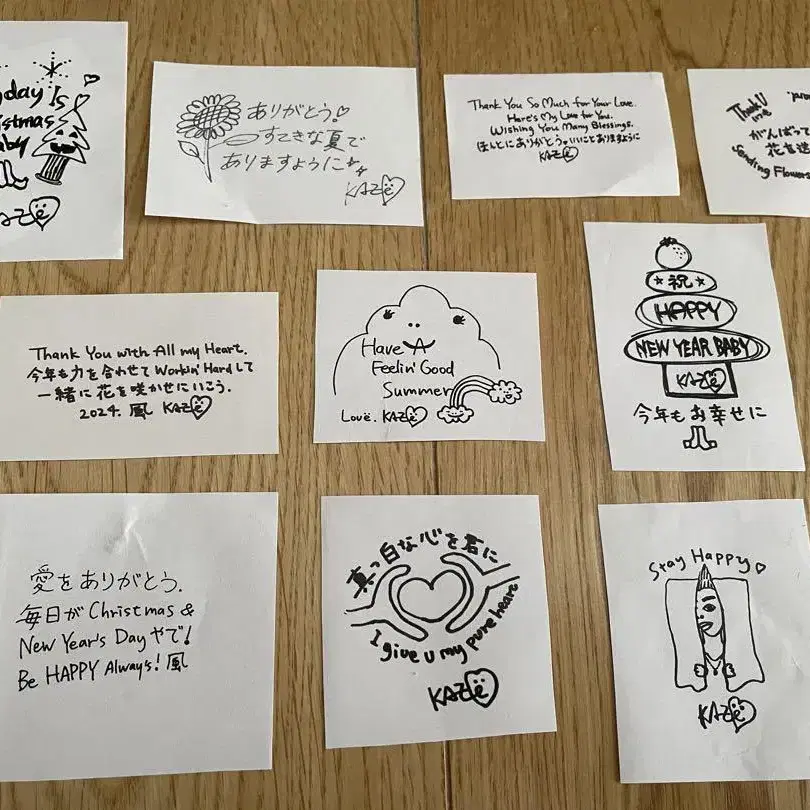 yday Is
istmas
aby
KAZë
ありがとう♡
すてきな夏で
ありますように
KAZë
Thank You So Much for Your Love.
Here's My Love for You.
Wishing You Many Blessings.
ほんとにありがとう。いいことありますように
KAZë
Thank U
me
がんばって
花を送
Sending Flowers
Thank You with All my Heart.
今年も力を合わせて Workin' Hardして
一緒に花を咲かせにいこう。
2024. 風 KAZë
Have A
Feelin' Good
Summer
Love. KAZë
祝
HAPPY
NEW YEAR BABY
KAZë
今年もお幸せに
愛をありがとう.
毎日が Christmas &
New Year's Day やで!
Be HAPPY Always! 風
真っ白な心を君に
I give u my pure heart
KAZë
Stay Happy♡
KAZë